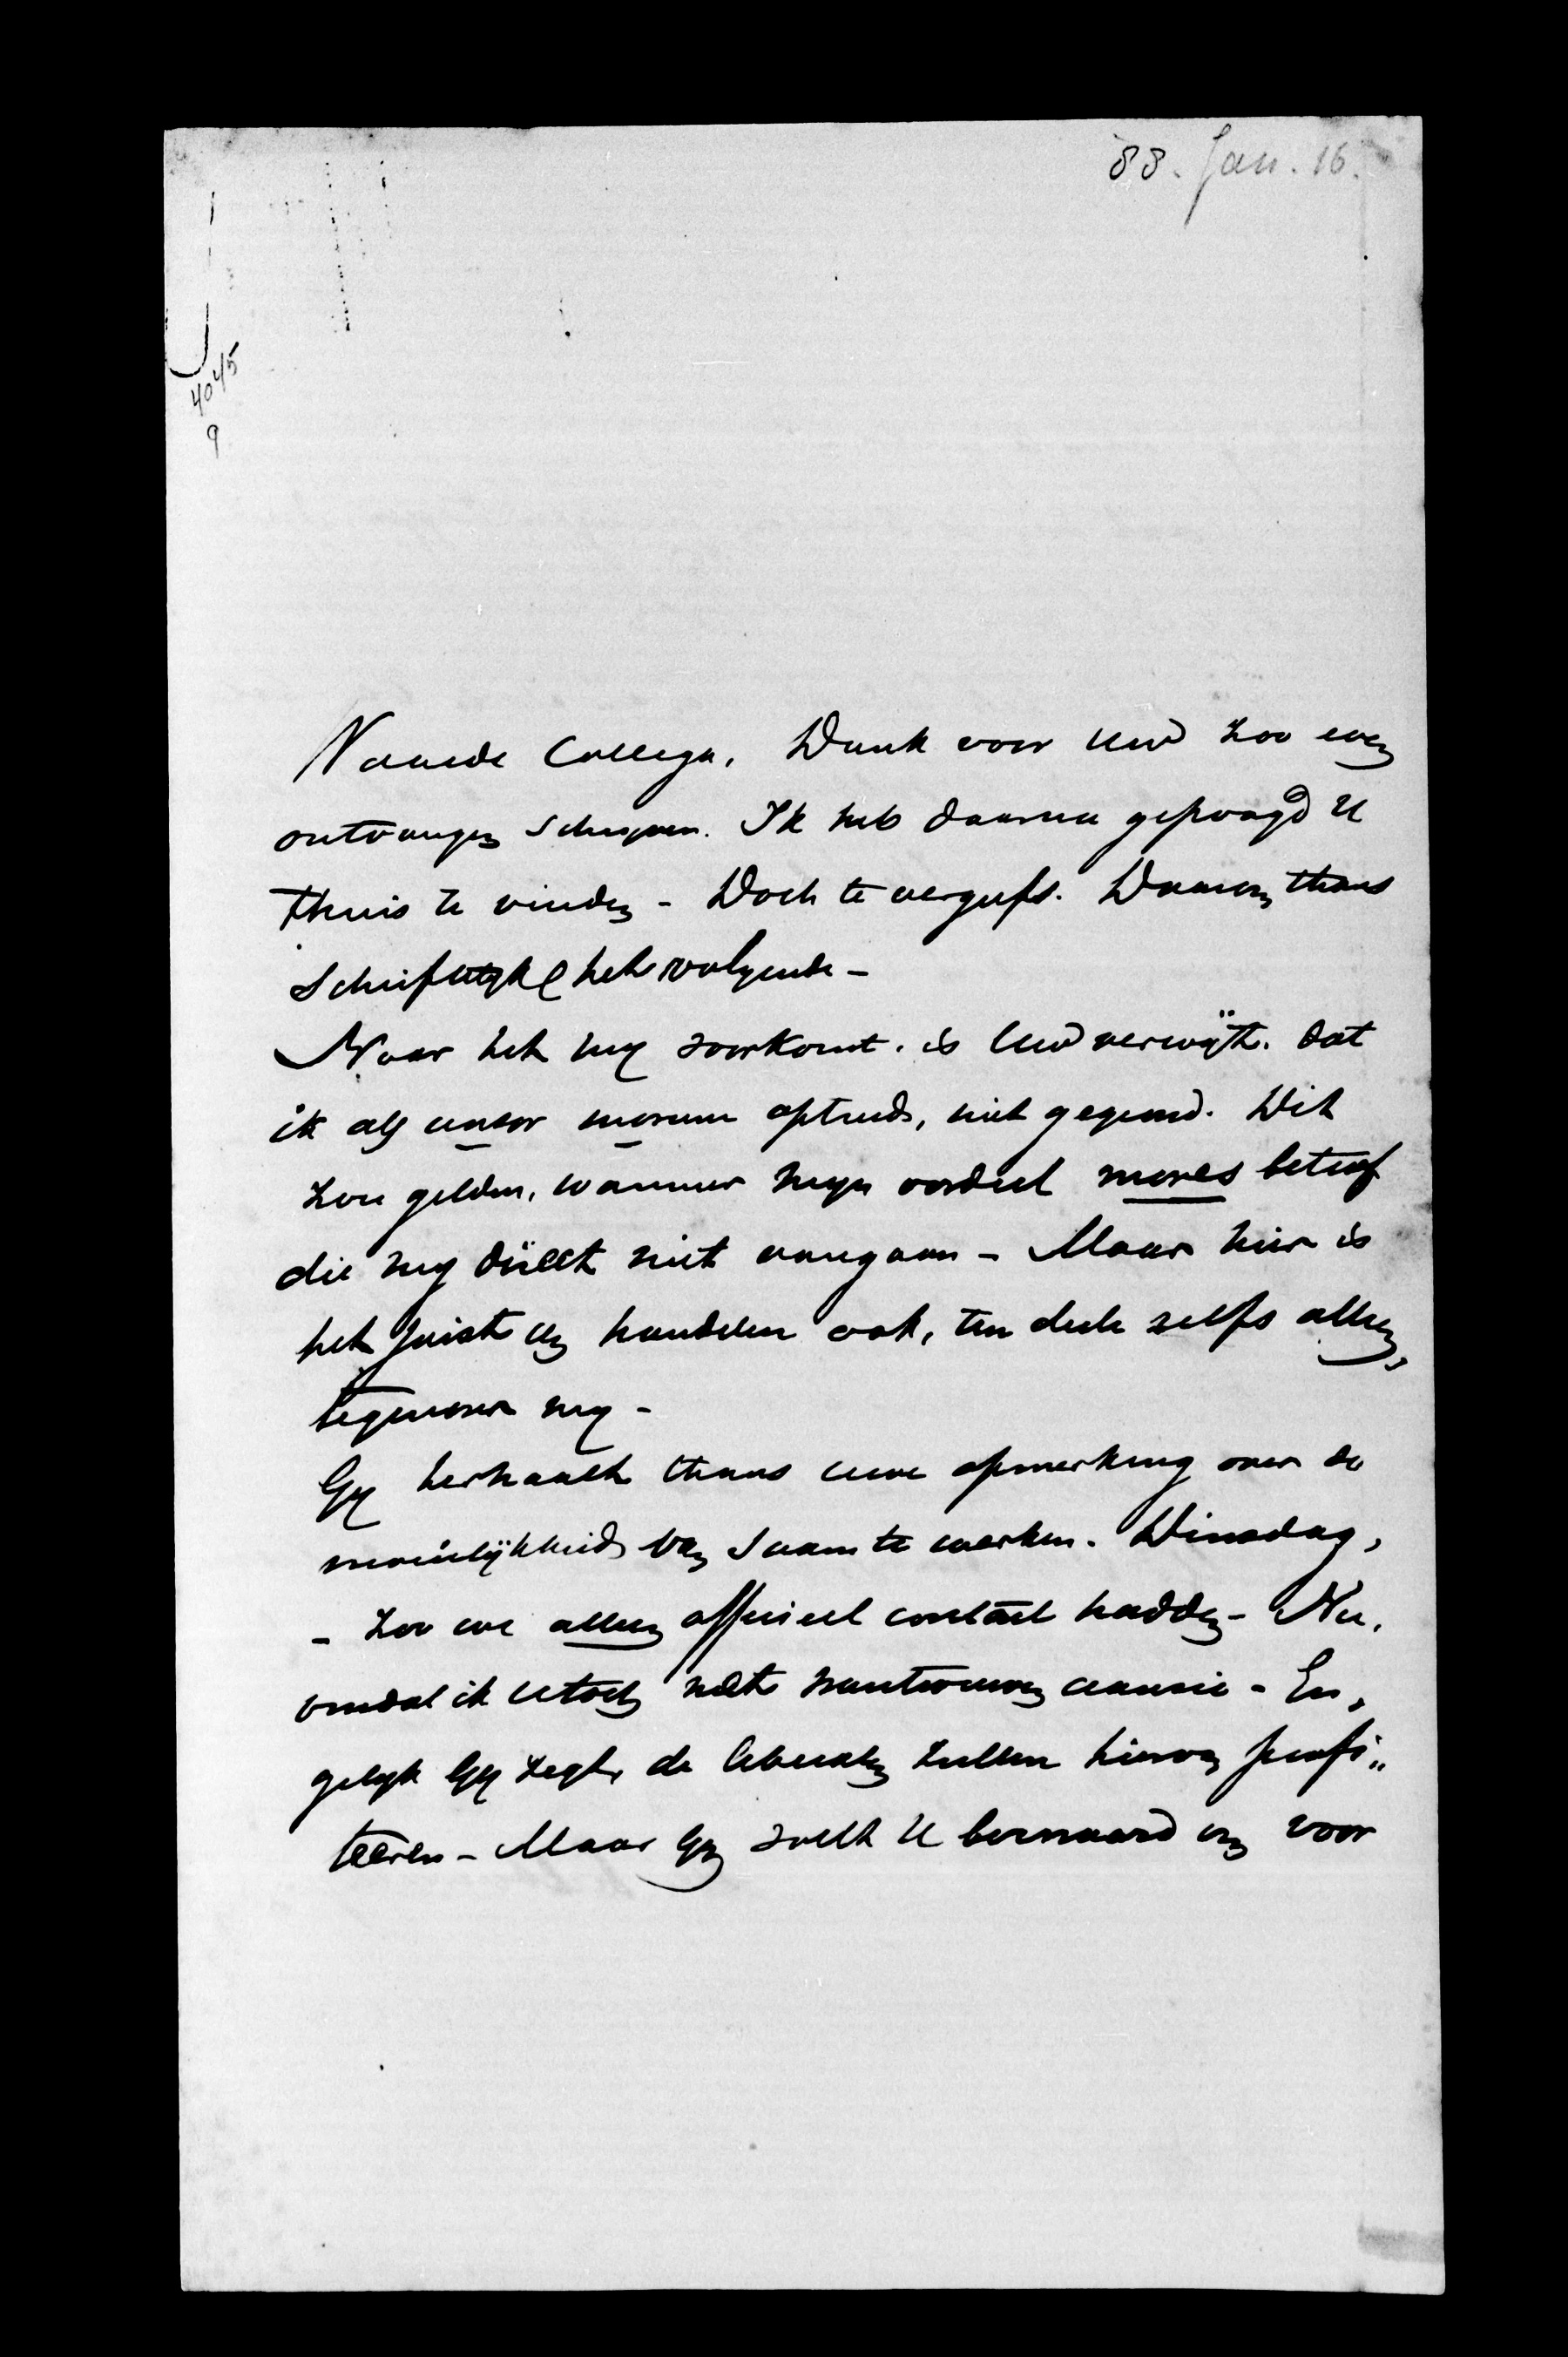 88. Jan. 16.
4045
9
Waarde Collega. Dank voor Uw zoo even
ontvangen schrijven. Ik heb daarna gepoogd U
thuis te vinden - Doch te vergeefs. Daarom thans
Schriftelijk het volgende -
Naar het mij voorkomt. is Uw verwijt. dat
ik als censor morum optreed, niet gegrond. Dit
zou gelden, wanneer mijn oordeel mores betrof
die mij direct niet aangaan - Maar hier is
het juist Uw handelen ook, ten deele zelfs alleen,
tegenover mij -
Gij herhaalt thans uwe opmerking over de
moeielijkheid van saam te werken. Dinsdag,
- zoo we alleen officieel contact hadden - Nu,
omdat ik U toch niet wantrouwen
gelijk Gij zegt, de liberalen zullen hiervan profi„
teeren - Maar Gij zult U bewaard en voor